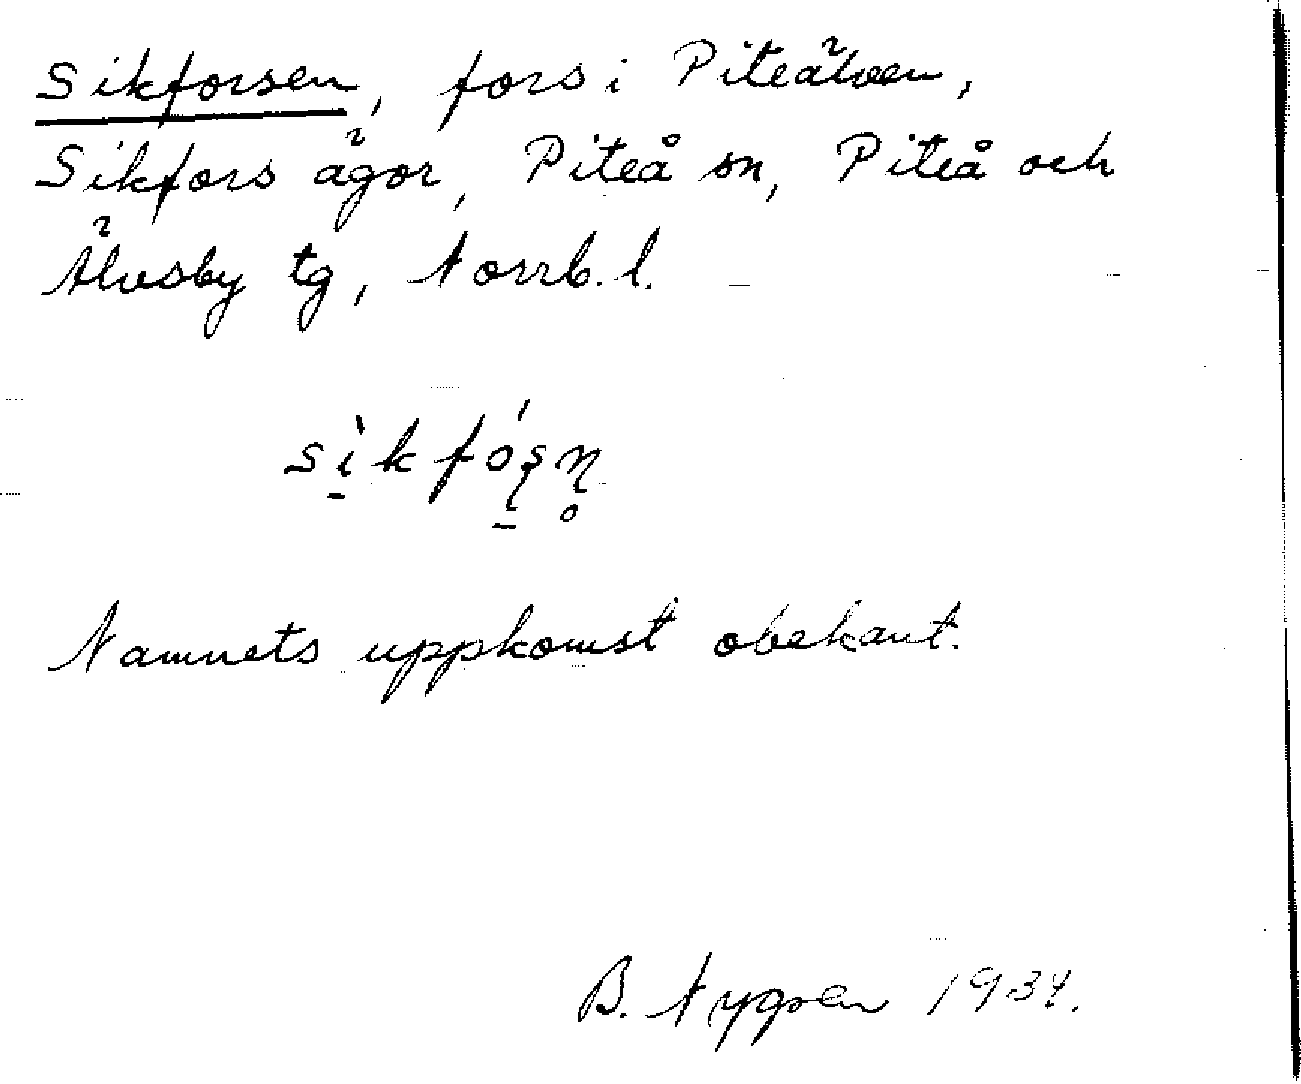 Sikforsen, fors i Piteälven,
Sikfors ägor, Piteå sn, Piteå och
Älvsby tg, Norrb. l.
sì̱kfó̱ʂn̥
Namnets uppkomst obekant.
B. Nygren 1934.